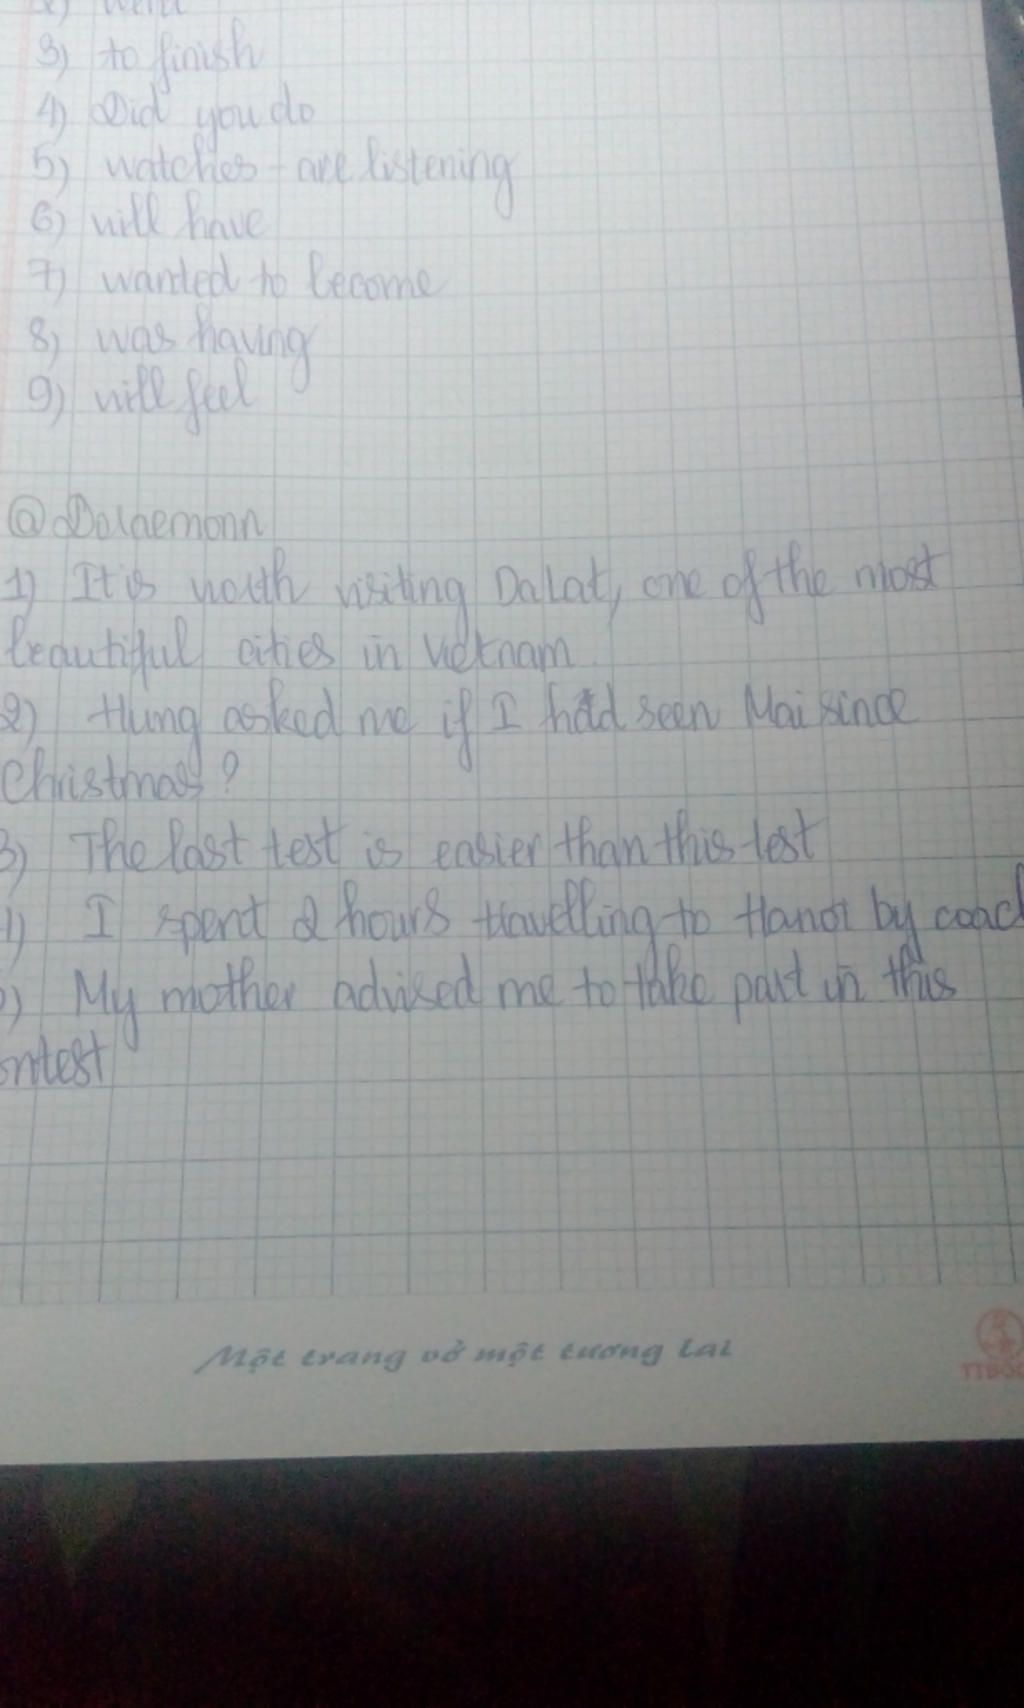 3) to finish
4) Did you do
5) watches - are listening
6) will have
7) wanted to become
8) was having
9) will feel
@Doraemonn
1) It is worth visiting DaLat, one of the most
beautiful cities in Vietnam.
2) Hung asked me if I had seen Mai since
Christmas?
3) The last test is easier than this test
I spent 2 hours travelling to Hanoi by coach
) My mother advised me to take part in this
ontest
Một trang vở một tương lai